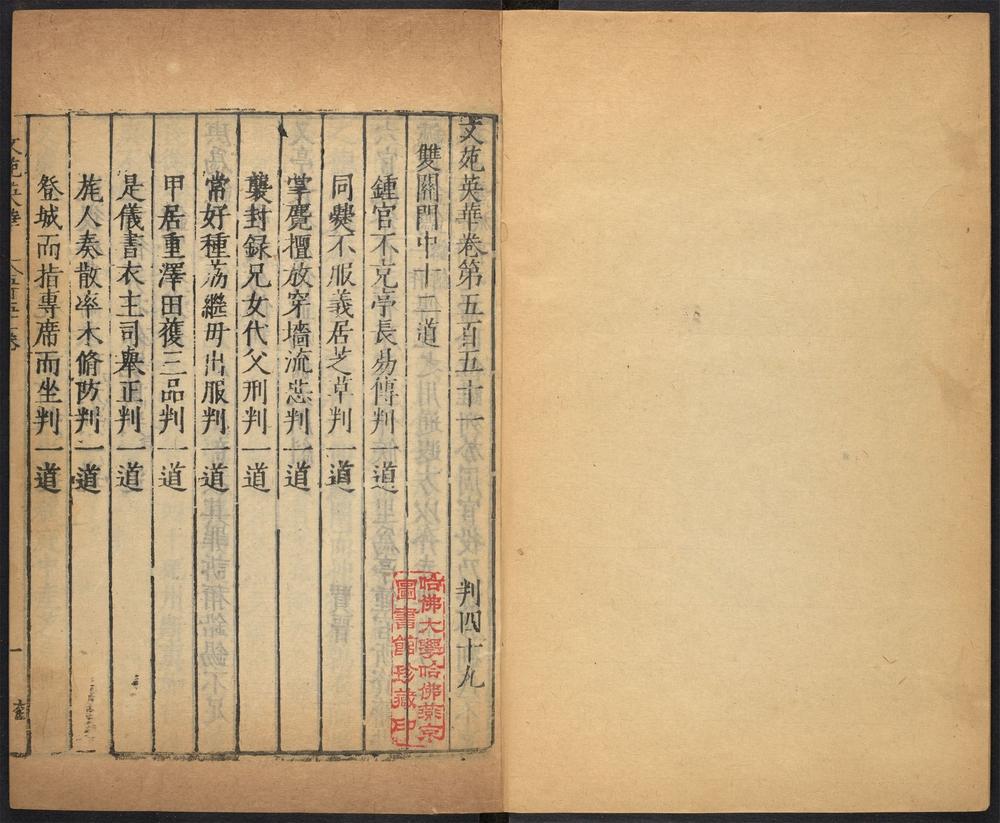 文苑英華卷第五百五十一 判四十九
雙關門中十二道
鍾官不克亭長易傳判一道
同爨不服義居芝草判一道
掌甖櫃放穿墻流惡判一道
襲封録兄女代父刑判一道
常好種荔繼母出服判一道
甲居重澤田獲三品判一道
是儀書衣主司舉正判一道
旄人奏散率木脩防判一道
登城而指專席而坐判一道
文苑英華
五百五十一卷
一
哈佛大學哈佛燕京
圖書館珍藏印